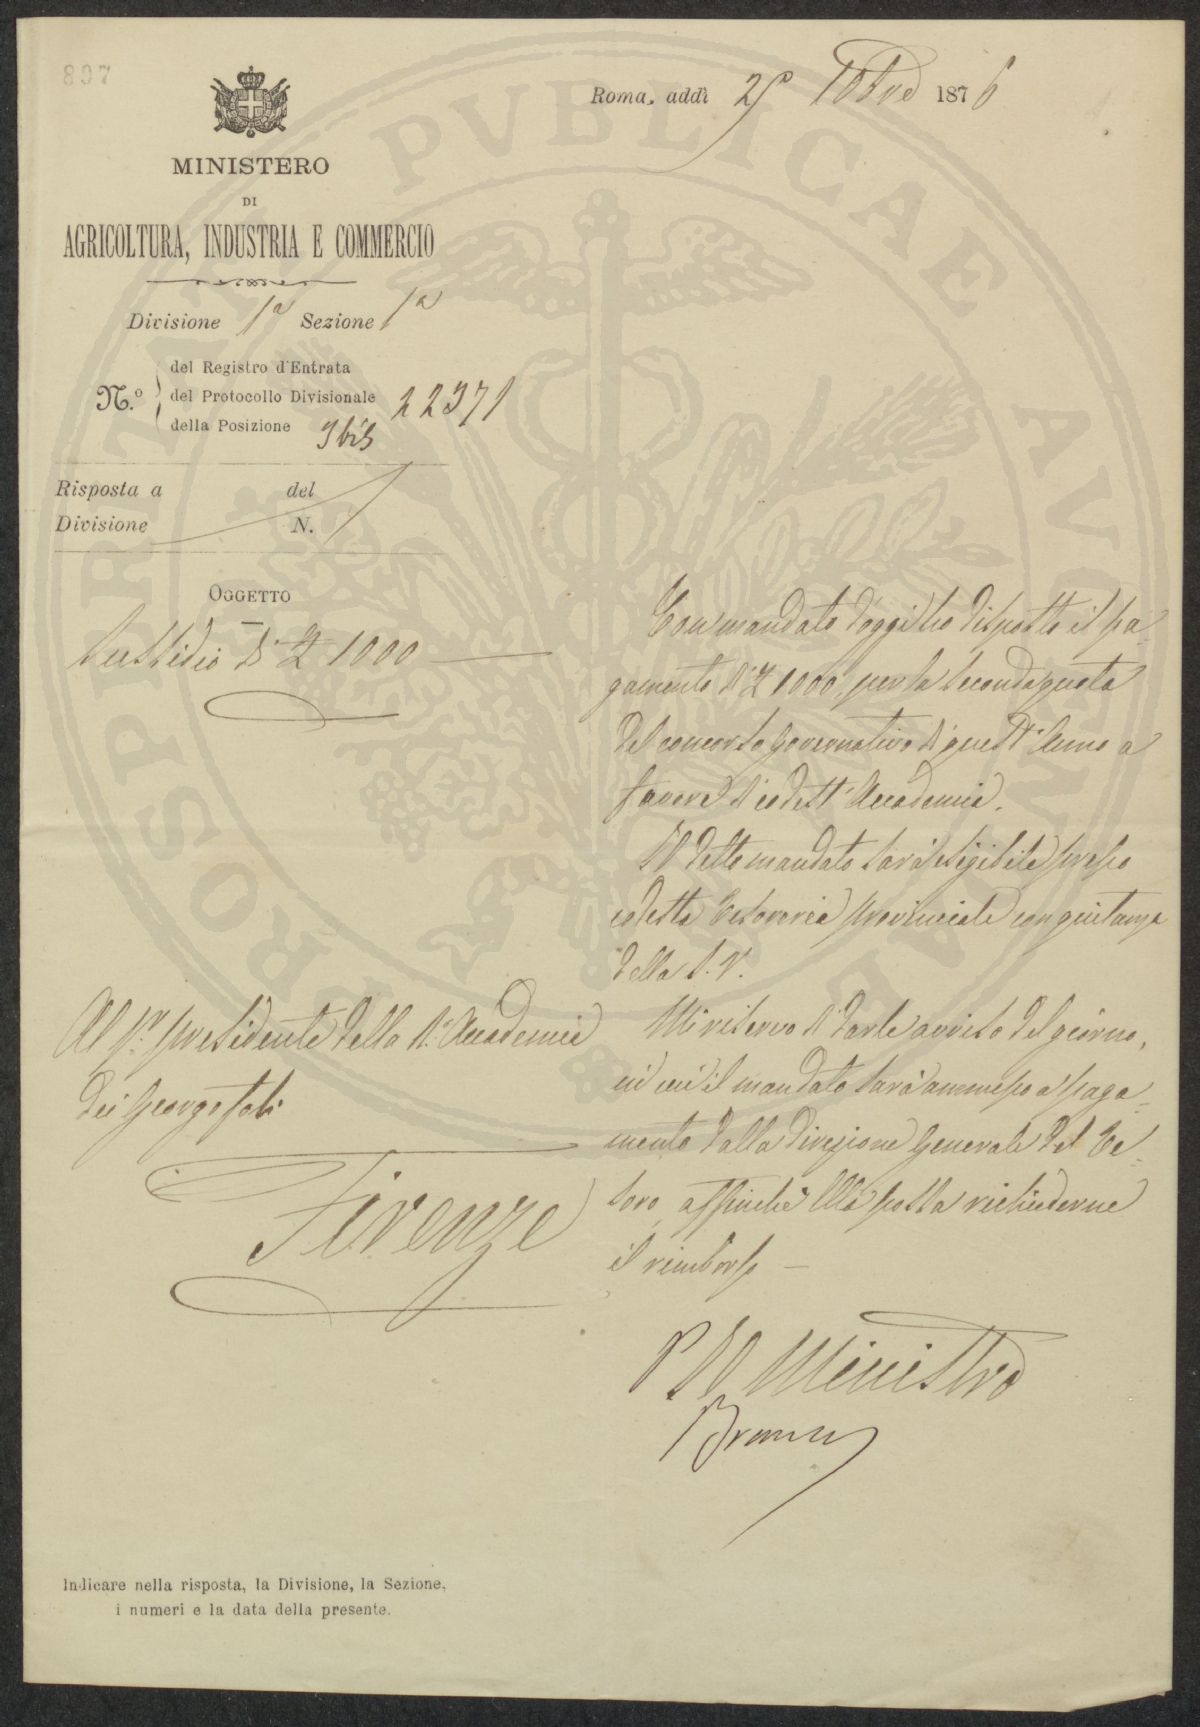 897
Roma, addì 25 7bre 1876
MINISTERO
DI
AGRICOLTURA, INDUSTRIA E COMMERCIO
Divisione 1a Sezione 1a
N.o
del Registro d'Entrata
del Protocollo Divisionale 22371
della Posizione 9 bis
Risposta a del
Divisione N.
OGGETTO
Sussidio di £ 1000
Con mandato d'oggi ho disposto il pa=
gamento di £ 1000, per la seconda quota
del concorso governativo di quest'anno a
favore di codest'Accademia.
Il detto mandato sarà esigibile presso
codesta Tesoreria provinciale con quitanza
della S. V.
Mi riservo di darle avviso del giorno,
in cui il mandato sarà ammesso a paga=
mento dalla Direzione Generale del Te=
soro, affinchè Ella possa richiederne
il rimborso
Al Sr. Presidente della R. Accademia
dei Georgofili
Firenze
P Il Ministro
Indicare nella risposta, la Divisione, la Sezione,
i numeri e la data della presente.
PROSPERITATI PVBLICAE AVGENDAE